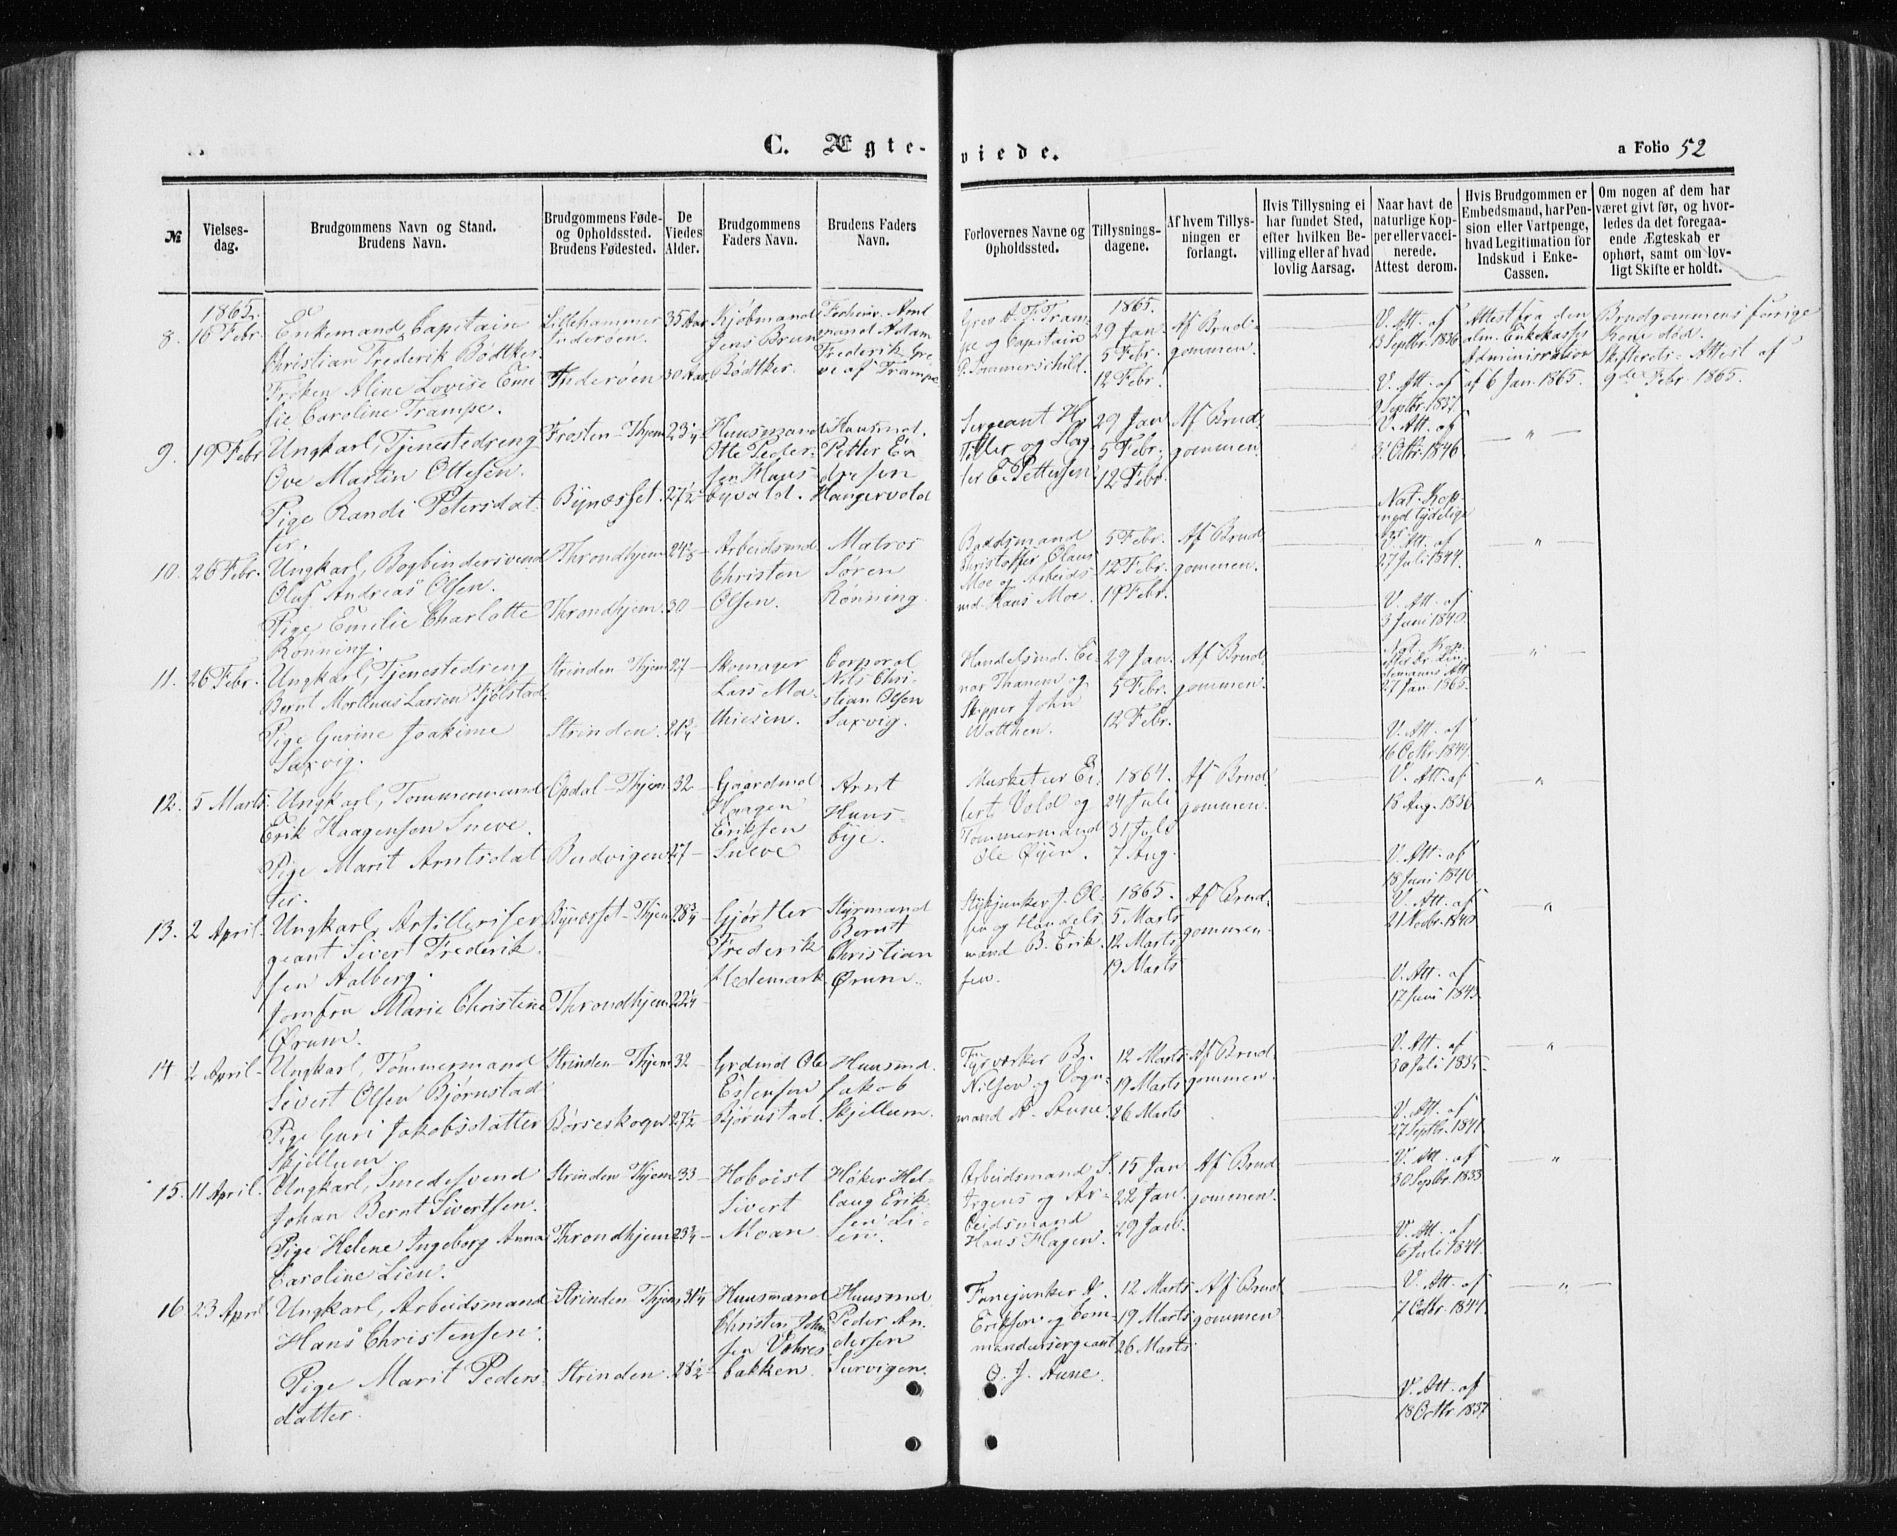 C. Ægte-
viede.
a Folio 52
№
Vielses-
dag.
Brudgommens Navn og Stand.
Brudens Navn.
Brudgommens Føde-
og Opholdssted.
Brudens Fødested.
De
Viedes
Alder.
Brudgommens
Faders Navn.
Brudens Faders
Navn.
Forlovernes Navne og
Opholdssted.
Tillysnings-
dagene.
Af hvem Tillys-
ningen er
forlangt.
Hvis Tillysning ei
har fundet Sted,
efter hvilken Be-
villing eller af hvad
lovlig Aarsag.
Naar havt de
naturlige Kop-
per eller vacci-
nerede.
Attest derom.
Hvis Brudgommen er
Embedsmand, har Pen-
sion eller Vartpenge,
hvad Legitimation for
Indskud i Enke-
Cassen.
Om nogen af dem har
været givt før, og hvor-
ledes da det foregaa-
ende Ægteskab er
ophørt, samt om lov-
ligt Skifte er holdt.
1865.
8. 16 Febr.
Enkemand, Capitain
Christian Frederik Bødtker.
Frøken Aline Lovise Emi
lie Caroline Trampe.
Lillehammer
Inderøen.
Inderøen
35 Aar
30 Aar
Kjøbmand
Jens Brun
Bødtker.
Forhenv. Amt
mand Adam
Frederik Gre
ve af Trampe
Grev A. F. Tram
pe og Capitain
P. Sommerschild.
1865.
29 Jan.
5 Febr.
12 Febr.
Af Brud-
gommen.
V. Att. af
13 Septbr. 1836
V. Att. af
2 Septbr. 1837
Attest fra den
alm. Enkekasses
Administration
af 6 Jan. 1865.
Brudgommens forige
Kone død.
Skifterets-Attest af
9de Febr. 1865.
9. 19 Febr
Ungkarl, Tjenestedreng
Ove Martin Ottesen.
Pige Randi Petersdat
ter.
Frosten - Thjem
Bynæsset.
23 1/4
27 1/2
Huusmand
Otte Peder-
sen Huus-
byvald.
Huusmd.
Petter En
dresen
Haugervold
Sergeant H.
Tiller og Hog
ter E. Pettersen
29 Jan
5 Febr.
12 Febr.
Af Brud-
gommen.
V. Att. af
2 Octbr. 1846
Nat. Kop-
per med tydelige
Ar.
"
10. 26 Febr.
Ungkarl, Bogbindersvend
Oluf Andreas Olsen.
Pige Emilie Charlotte
Rönning.
Throndhjem
Throndhjem.
24 1/3
30
Arbeidsmd
Christen
Olsen.
Matros
Søren
Rönning.
Baadsmand
Christoffer Olaus
Moe og Arbeids
md. Hans Moe.
5 Febr.
12 Febr.
19 Febr.
Af Brud
gommen.
V. Att. af
27 Juli 1844.
V. Att. af
3 Juni 1840.
"
11. 26 Febr.
Ungkarl, Tjenestedreng
Bernt Mortinus Larsen Fjølstad
Pige Gurine Joakime
Saxvig.
Strinden Thjem
Strinden.
27
21 3/4
Skomager
Lars Ma-
thiesen.
Corporal
Nils Chri-
stian Olsen
Saxvig.
Handelsmd. Ei-
nar Thanem og
Skipper John
Watthen.
29 Jan.
5 Febr.
12 Febr.
Af Brud
gommen.
Nat. Kop.
efter Dr. Lin-
demanns Att.
27 Jan. 1865.
V. Att. af
16 Octbr. 1844.
"
12. 5 Marts
Ungkarl, Tømmermand
Erik Haagensen Sneve.
Pige Marit Arntsdat
ter.
Opdal - Thjem
Budvigen
32
27
Gaardmd
Haagen
Eriksen
Sneve
Arnt
Huus-
bye.
Musketeer Ei-
lert Vold og
Tømmermand
Ole Øyen.
1864.
24 Juli
31 Juli
7 Aug.
Af Brud
gommen.
V. Att. af
18 Aug. 1836
V. Att. af
18 Juni 1840
"
13. 2 April.
Ungkarl, Artilleriser
geant Sivert Frederik
sen Aalberg.
Jomfru Marie Christine
Ørum.
Bynæsset - Thjem
Throndhjem
28 3/4
22 1/4
Gjørtler
Frederik
Hedemark
Styrmand
Bernt
Christian
Ørum.
Stykjunker J. Ol-
sen og Handels
mand B. Erik-
sen.
1865.
5 Marts
12 Marts
19 Marts
Af Brud-
gommen.
V. Att. af
21 Novbr. 1840
V. Att. af
17 Juni 1843.
"
14 2 April.
Ungkarl, Tømmermand
Sivert Olsen Bjørnstad
Pige Guri Jakobsdatter
Skjellum.
Strinden - Thjem
Børseskogn
32
27 1/2
Grdmd Ole
Estensen
Bjørnstad.
Huusmd.
Jakob
Skjellum.
Fyrværker B.
Nilsen og Vogn-
mand A. Aune.
12 Marts
19 Marts
26 Marts
Af Brud-
gommen.
V. Att. af
30 Juli 1835.
V. Att. af
27 Septbr. 1841.
"
15. 11 April.
Ungkarl, Smedesvend
Johan Bernt Sivertsen.
Pige Helene Ingeborg Anna
Caroline Lien.
Strinden Thjem
Throndhjem
33
23 1/4
Hoboist
Sivert
Moan
Høker Hel-
laug Erik-
sen Li-
en.
Arbeidsmand S.
Argens og Ar-
beidsmand
Hans Hagen.
15 Jan
22 Jan.
29 Jan.
Af Brud
gommen.
V. Att. af
30 Septbr. 1833
V. Att. af
6 Juli 1844.
"
16 23 April
Ungkarl, Arbeidsmand
Hans Christensen.
Pige Marit Peders-
datter.
Strinden Thjem
Strinden.
31 1/4
28 1/2
Huusmand
Christen John
sen Vohres
bakken.
Huusmd
Peder An
dersen
Survigen.
Fanejunker A.
Eriksen og Com-
mandeursergeant
O. J. Aune.
12 Marts
19 Marts
26 Marts
Af Brud
gommen
V. Att. af
7 Octbr. 1844.
V. Att. af
18 Octbr. 1837
"